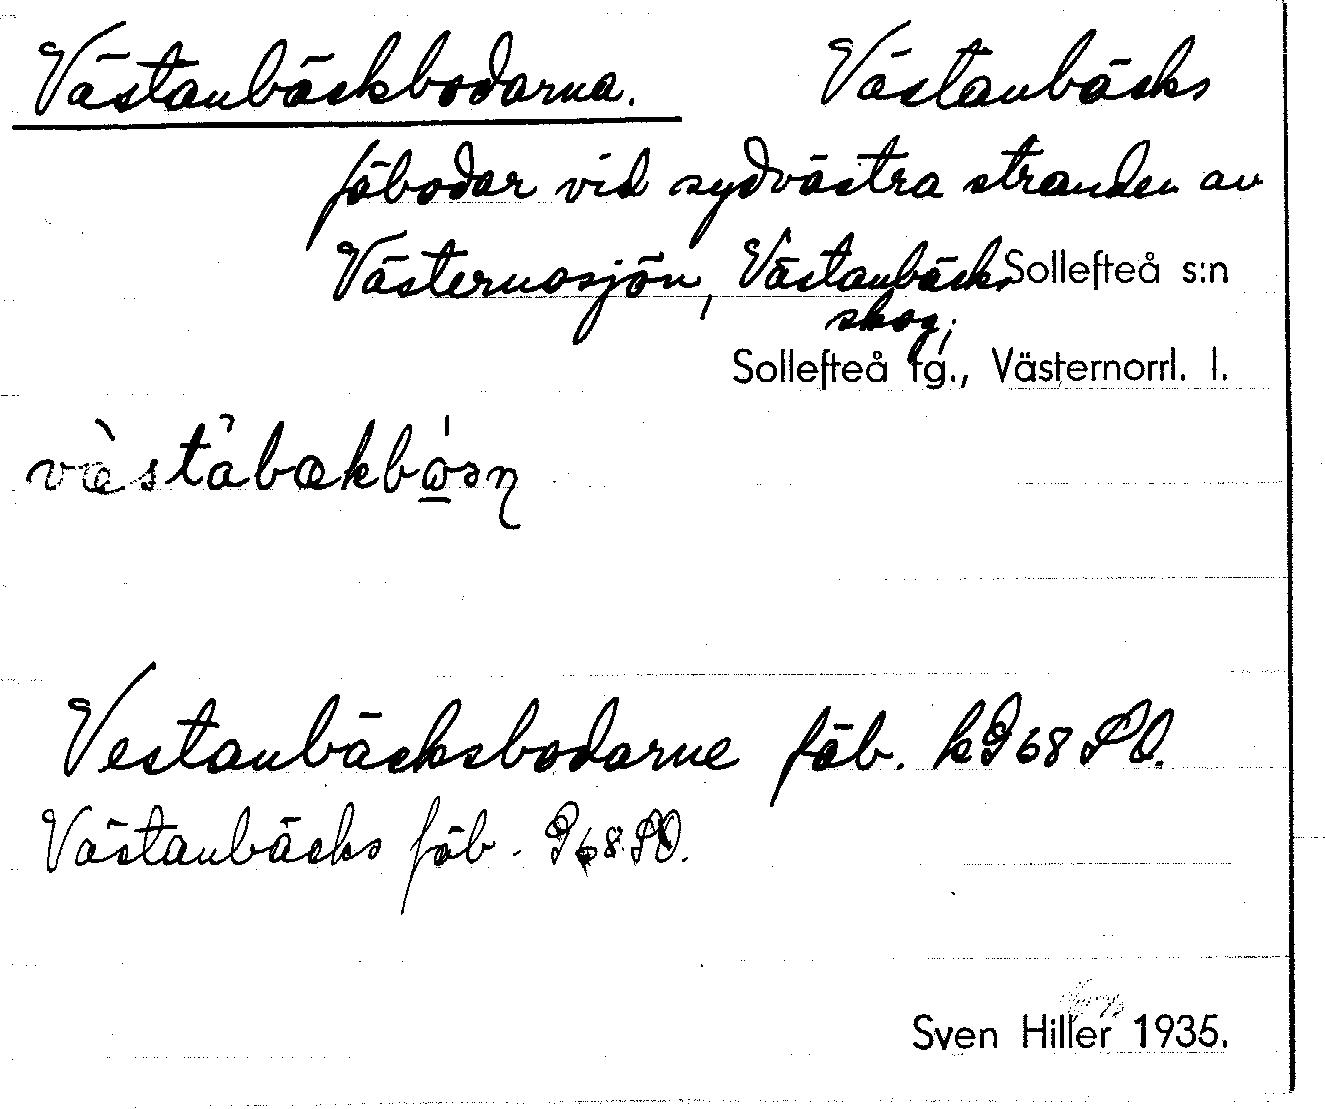 Västanbäckbodarna. Västanbäcks
fäbodar vid sydvästra stranden av
Västernosjön, Västanbäcks Sollefteå s:n
skog;
Sollefteå tg., Västernorrl. l.
Vestanbäcksbodarne fäb. k 68
Västanbäcks fäb. 68
Sven Hiller 1935.